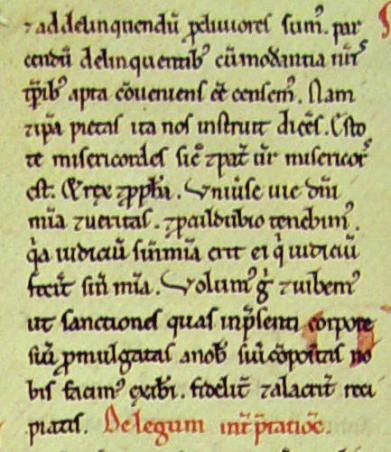 ⁊ ad delinquendũ ꝓcliuiores sumꝰ. par
cendũ delinquentibꝰ cũ modantia nr̃is
tp̃ibꝰ apta cõueniens eẽ censemꝰ. Nam
⁊ ip̃a pietas ita nos instruit dices̃. Esto
te misericordes sic̃ ⁊ pat̃ ur̃ misericors
est. Et rex ꝓph̃a. Vniuse uie dñi
mĩa ⁊ ueritas. ⁊ ꝓcul dubio tenebimꝰ.
q̃a iudiciũ sin̄ mĩa erit ei q̇ iudiciũ
fecit sin̄ mĩa. Volumꝰ g̃ ⁊ iubemꝰ
ut sanctiones quas in p̃senti corpore
sũ ꝓmulgatas a nob̃ siũ cõpositas no
bis facimꝰ exib̃i. fidelit̃ ⁊ alacrit̃ reci
piatis. De legum int̃p̃tatiõe.